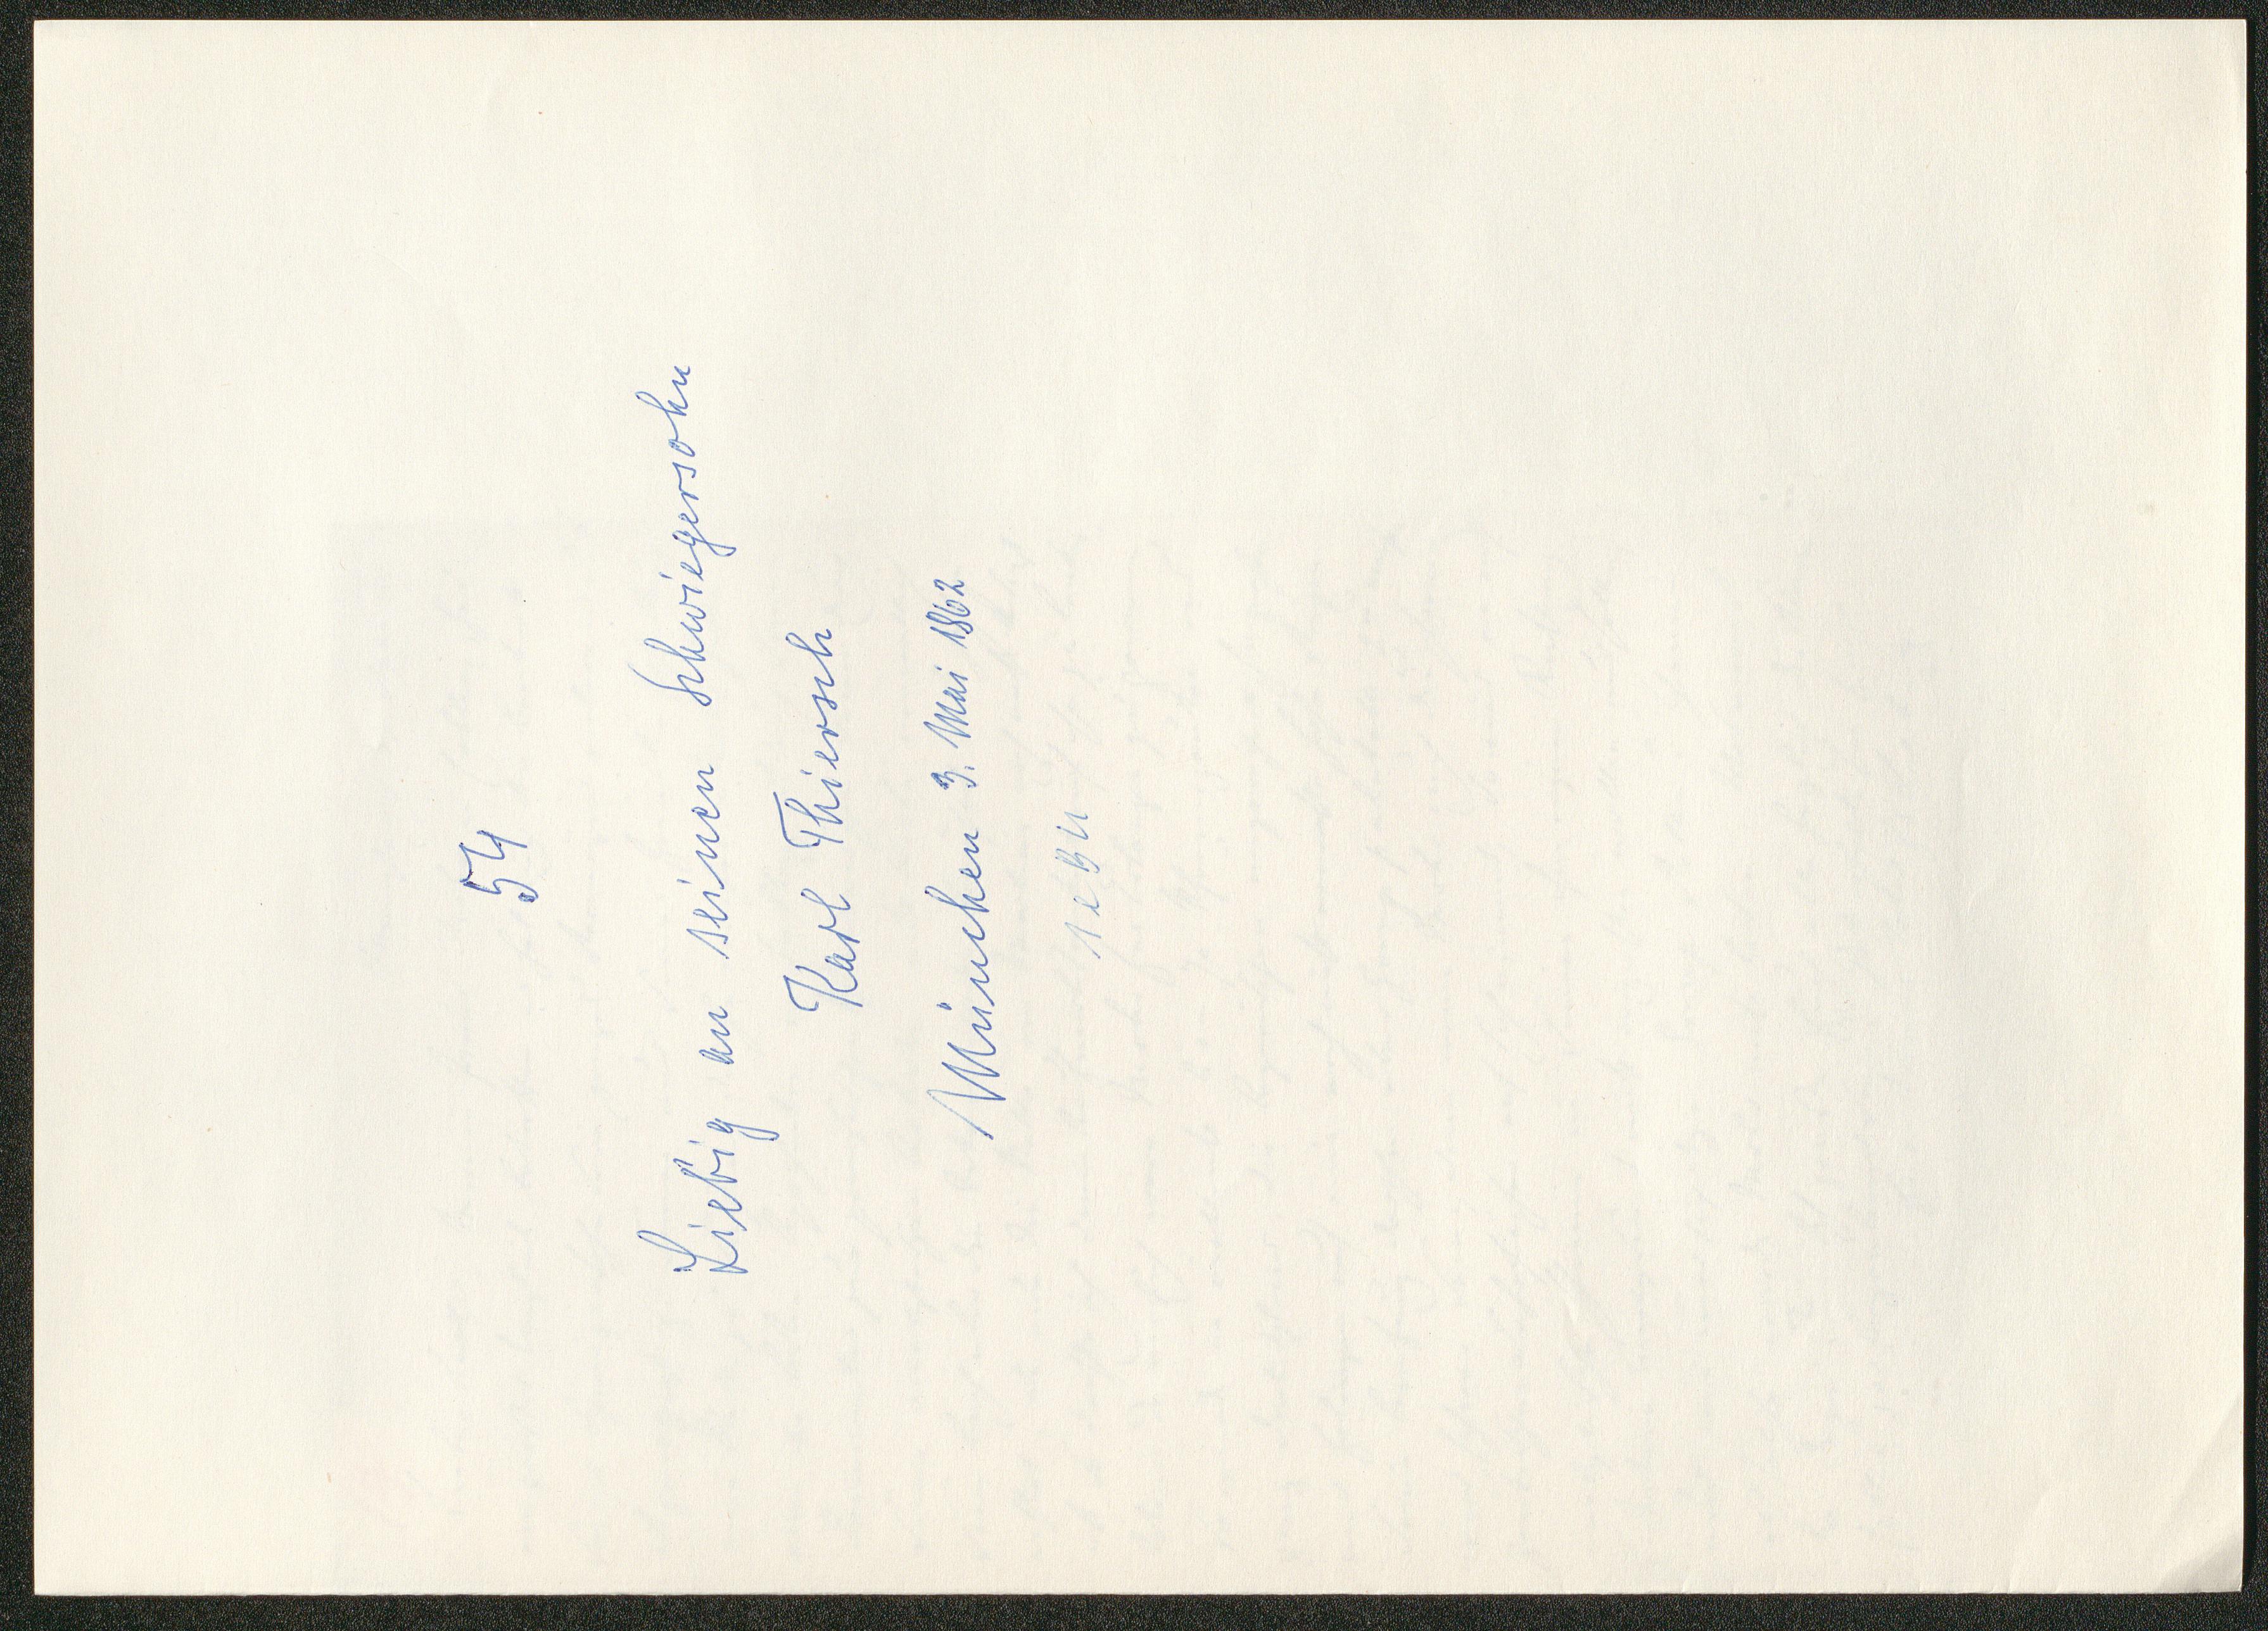 54
Liebig an seinen Schwiegersohn
Karl Thiersch
München 3. Mai 1862